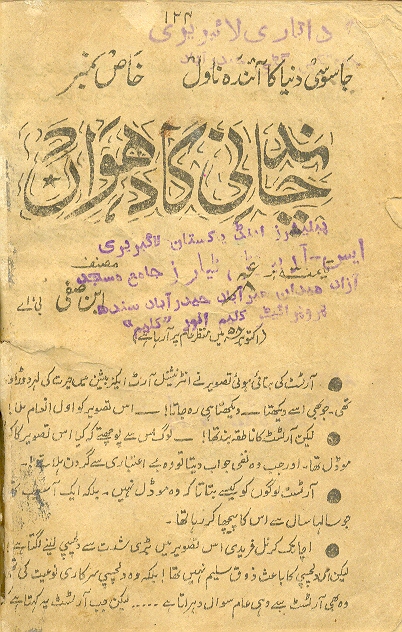 ۱۲۴
دانارى لائبریری
جاسوسی دنیا کا آئندہ ناول خاص نمبر
چاندنی کا دھواں
پاکستان لائبریری
مصنف
جامع مسجد
آزاد میدان حیدرآباد سندھ
ابن صفی بی اے
پروپرائیٹر کلیم انور "کلیم"
میں منظر عام پر آ رہا ہے)
آرٹسٹ کی بنائی ہوئی تصویر نے انٹرنیشنل آرٹ اگزیبیشن میں حیرت کی لہر دوڑا
تھی۔ جو بھی اسے دیکھتا — دیکھتا ہی رہ جاتا! — اس تصویر کو اول انعام ملا!
لیکن آرٹسٹ کا ناطقہ بند تھا! — لوگ اس سے پوچھتے کہ کیا اس تصویر کا
موڈل تھا۔ اور جب وہ نفی میں جواب دیتا تو وہ بے اعتباری سے گردن ہلاتے!۔
آرٹسٹ لوگوں کو کیسے بتاتا کہ وہ موڈل نہیں۔ بلکہ ایک آسیب
جو سالہا سال سے اس کا پیچھا کر رہا تھا۔
اچانک کرنل فریدی اس تصویر میں بڑی شدت سے دلچسپی لینے لگتا ہے
لیکن اس دلچسپی کا باعث ذوق سلیم نہیں تھا! بلکہ وہ دلچسپی سرکاری نوعیت کی
وہ بھی آرٹسٹ سے وہی عام سوال دہراتا ہے ..... لیکن جب آرٹسٹ یہ کہتا ہے